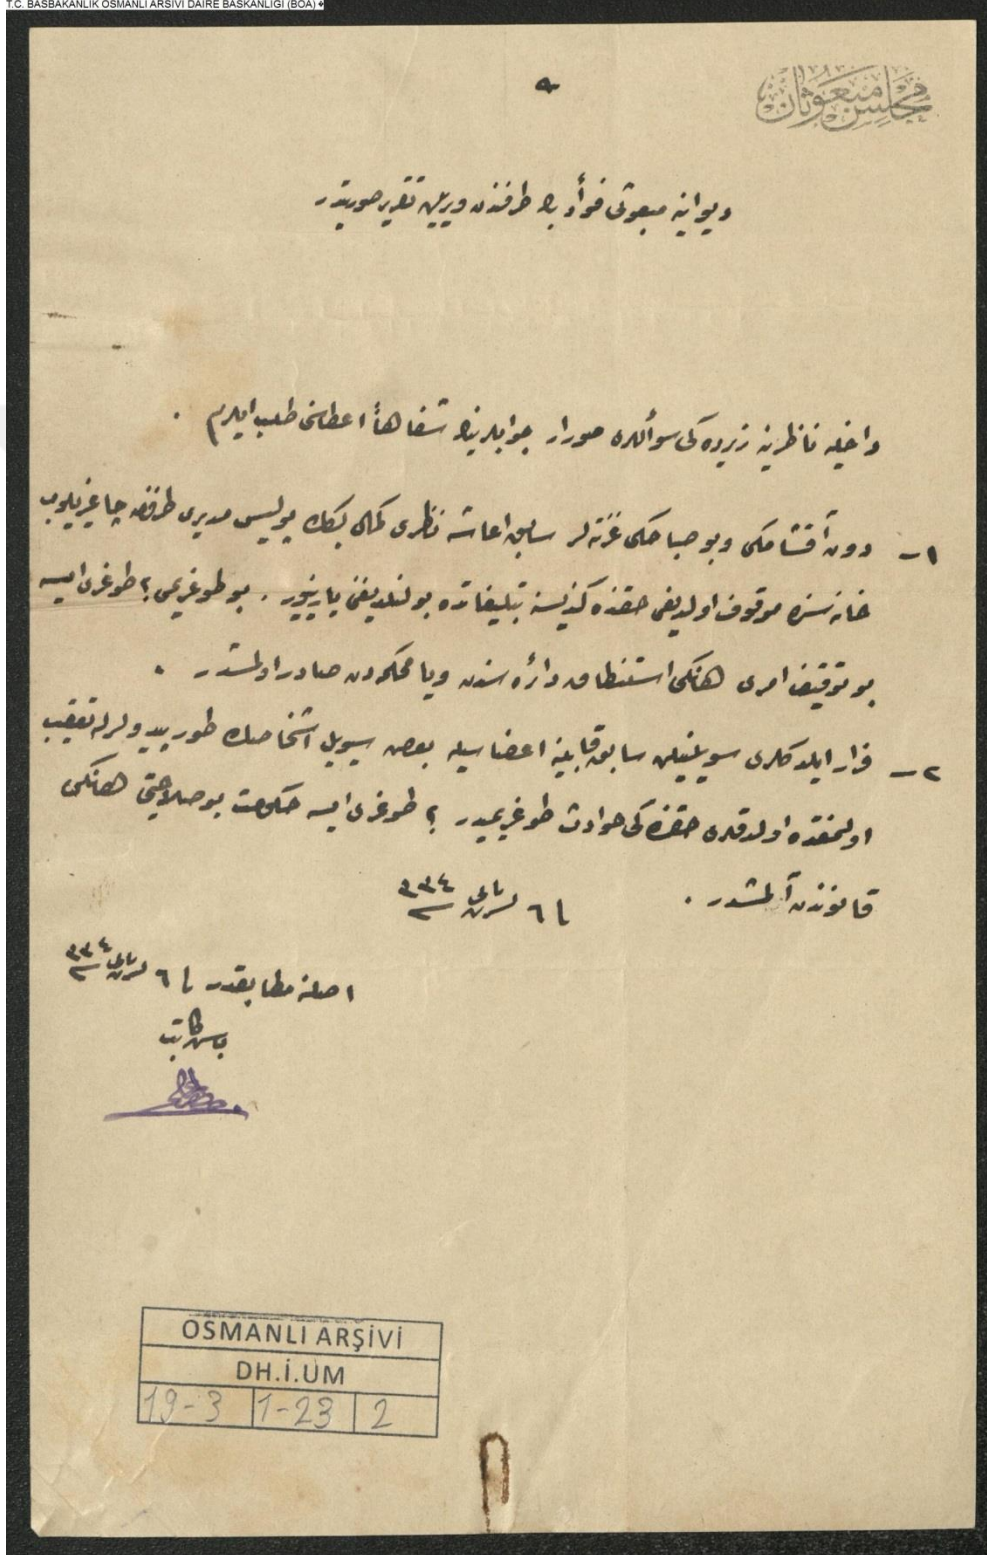 T.C. BASBAKANLIK OSMANLI ARSIVI DAIRE BASKANLIGI (BOA)
مجلس مبعوثان
ديوانيه مبعوثى فؤاد بك طرفندن ويريلن تقرير صورتيدر
داخليه ناظرينه زيرده كى سوأللره جوابلرينك شفاهاً اعطاسنى طلب ايلرم .
١– دون آقشامكى وبو صباحكى غزته لر سابق اعاشه نظرى كمال بكك پوليس مديرى طرفندن چاغريلوب
خانه سنده موقوف اولديغى حقنده كنديسنه تبليغاتده بولنلديغنى يازييور . بو طوغريمى ؟ طوغرى ايسه
بو توقيف امرى هانكى استنطاق دائره سندن ويا محكمه دن صادر اولمشدر .
٢– فرار ايلدكلرى سويلنيلن سابق قابينه اعضاسيله بعض سيويل اشخاصك طورپيدولرله تعقيب
اولنمقده اولدقلرى حقنده كى حوادث طوغريميدر ؟ طوغرى ايسه حكومت بو صلاحيتى هانكى
قانوندن آلمشدر .
٦ تشرين ثانى ٣٣٤
اصلنه مطابقدر ٦ تشرين ثانى ٣٣٤
باش كاتب
OSMANLI ARŞİVİ
DH.İ.UM
19-3 1-23 2